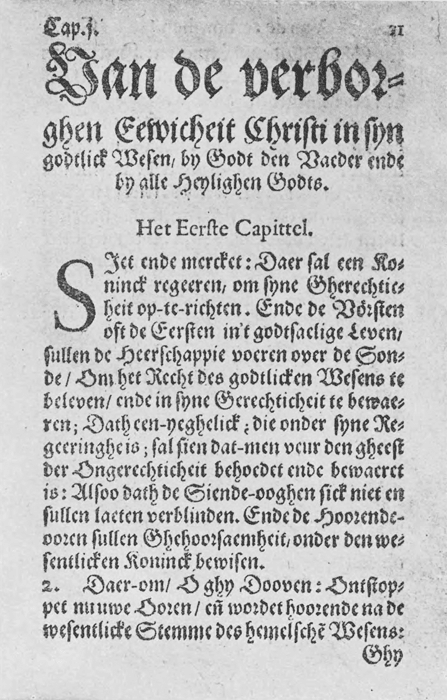 Cap. j. 21
Van de verbor-
ghen Eewicheit Christi in syn
godtlick Wesen/ by Godt den Vaeder ende
by alle Heylighen Godts.
Het Eerste Capittel.
SIet ende mercket: Daer sal een Ko-
ninck regeeren/ om syne Gherechtic-
heit op-te-richten. Ende de Vörsten
oft de Eersten in't godtsaelige Leven/
sullen de Heerschappie voeren over de Son-
de/ Om het Recht des godtlicken Wesens te
beleven/ ende in syne Gerechticheit te bewae-
ren; Dath een-yeghelick; die onder syne Re-
geeringhe is; sal sien dat-men veur den gheest
der Ongerechticheit behoedet ende bewaeret
is: Alsoo dath de Siende-ooghen sick niet en
sullen laeten verblinden. Ende de Hoorende-
ooren sullen Ghehoorsaemheit/ onder den we-
sentlicken Koninck bewisen.
2. Daer-om/ O ghy Dooven: Ontstop-
pet nu uwe Ooren/ eñ wordet hoorende na de
wesentlicke Stemme des hemelschẽ Wesens:
Ghy